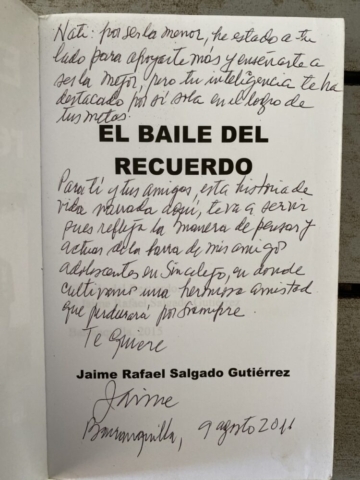 Nati: por ser la menor, he estado a tu
lado para apoyarte más y enseñarte a
ser la mejor, pero tu inteligencia te ha
destacado por sí sola en el logro de
tus metas.
EL BAILE DEL
RECUERDO
Para tí y tus amigos, esta historia de
vida narrada aquí, te va a servir
pues refleja la manera de pensar y
actuar de la barra de mis amigos
adolescentes en Sincelejo, en donde
cultivamos una hermosa amistad
que perdurará por siempre.
Te quiere
Jaime Rafael Salgado Gutiérrez
Jaime
Barranquilla, 9 agosto 2011